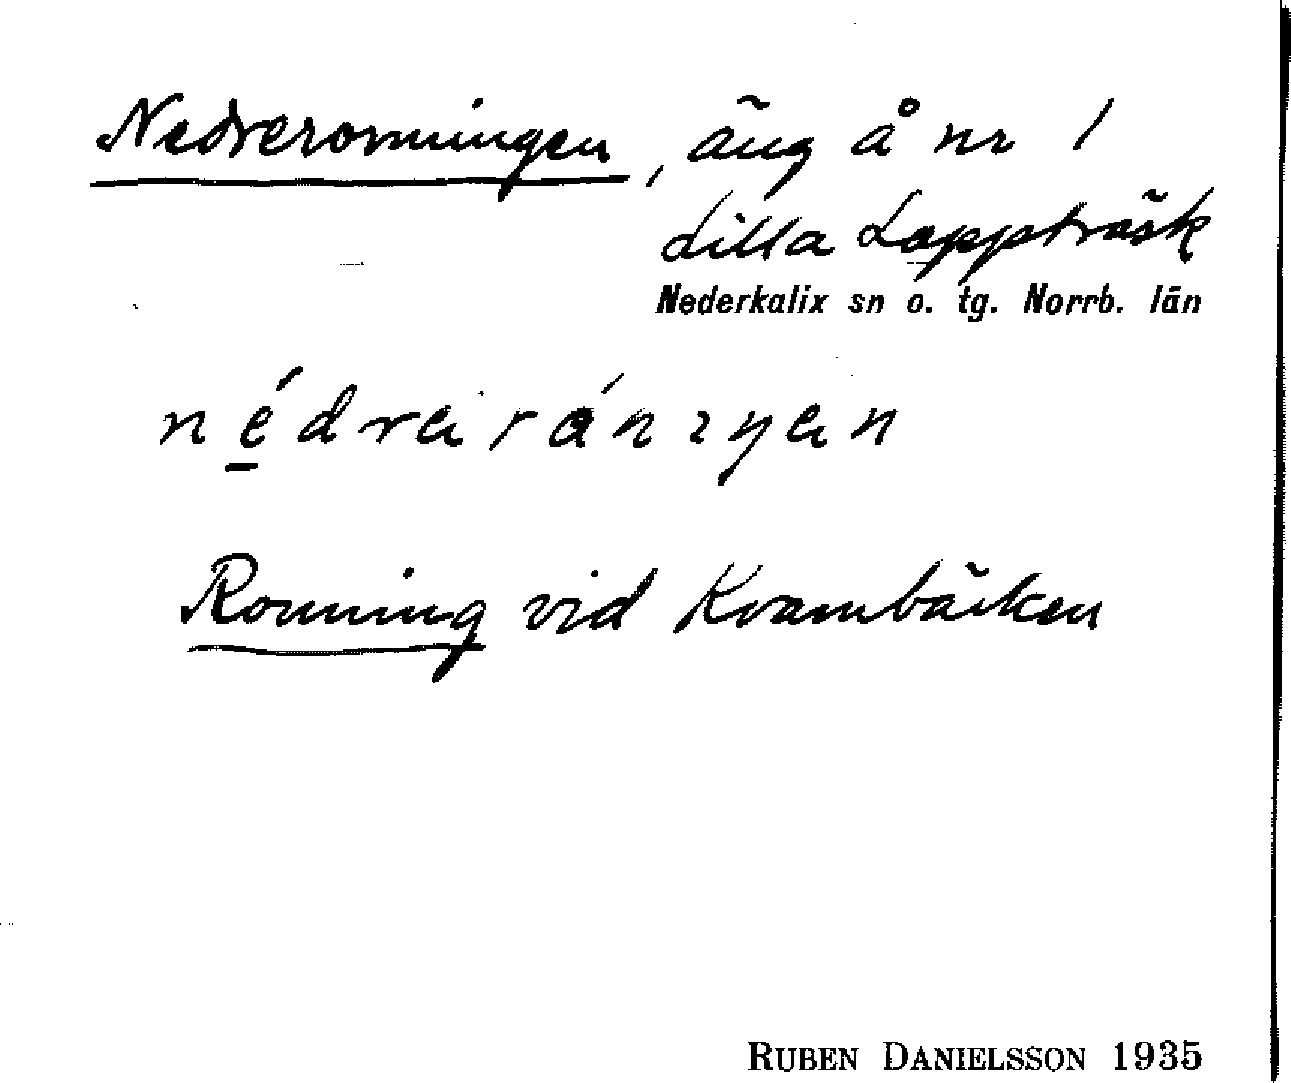 Nedreronningen, äng å nr 1
Lilla Lappträsk
Nederkalix sn o. tg. Norrb. län
Ronning vid Kvarnbäcken
RUBEN DANIELSSON 1935